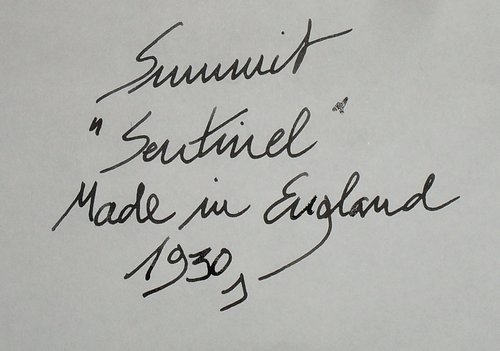 Summit
"Sentinel"
Made in England
1930s